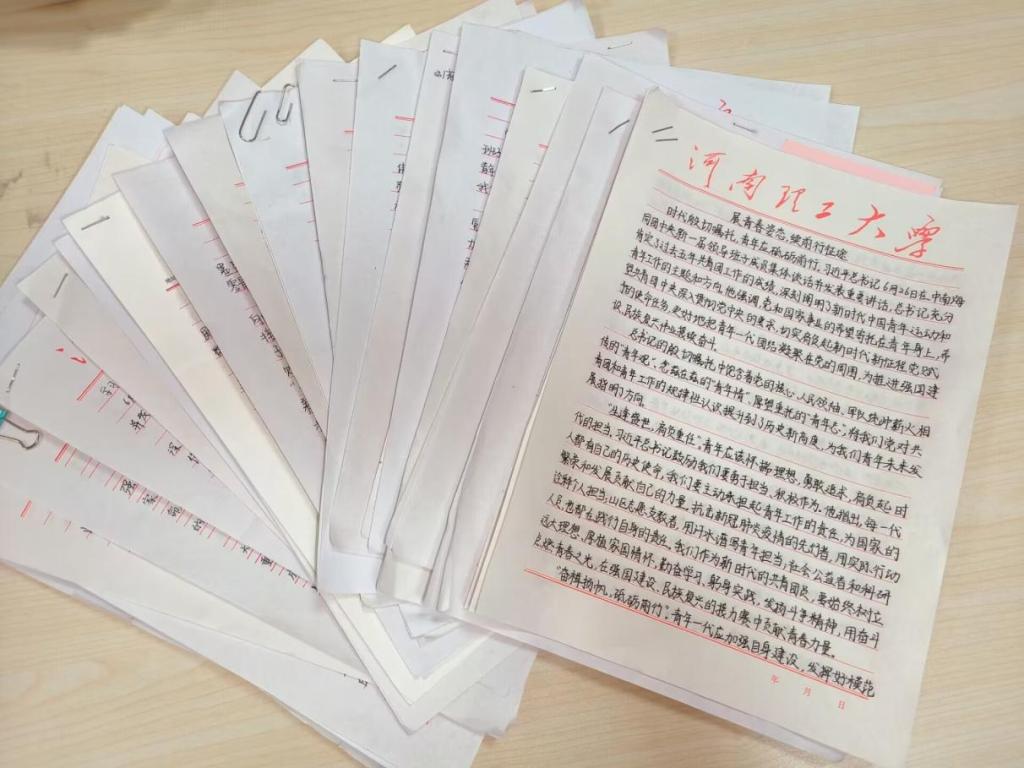 河南理工大学
展青春姿态,续前行征途
时代殷切嘱托,青年在砥砺前行。习近平总书记6月26日在中南海
同团中央新一届领导班子成员集体谈话并发表重要讲话,总书记充分
肯定了过去五年共青团工作的成绩,深刻阐明了新时代中国青年运动和
青年工作的主题和方向。他强调,党和国家事业的希望寄托在青年身上,希
望共青团中央深入贯彻党中央的要求,切实肩负起新时代新征程党赋
的使命任务,更好地把青年一代团结凝聚在党的周围,为推进强国建
设、民族复兴伟业接续奋斗。
总书记的殷切嘱托,中饱含着党的核心、人民领袖、军队统帅薪火相
传的“青年观”、念兹在兹的“青年情”、厚望重托的“青年志”,将我们党对共
青团和青年工作的规律性认识提升到了历史新高度,为我们青年未来发
展指明了方向。
“生逢盛世,肩负重任”,青年应该怀揣理想,勇敢追求,肩负起时
代的担当。习近平总书记鼓励我们要勇于担当、积极作为。他指出,每一代
人都有自己的历史使命,我们要主动承担起青年工作的责任,为国家的
繁荣和发展贡献自己的力量。抗击新冠肺炎疫情的先锋者,用实际行动
诠释个人担当,山区志愿支教者,用汗水谱写青年担当,社会公益者和科研
人员,也都在我们自身的责任。我们作为新时代的共青团员,要始终树立
远大理想、厚植家国情怀,勤奋学习、躬身实践,发扬斗争精神,用奋斗
点燃青春之光,在强国建设、民族复兴的接力赛中贡献青春力量。
“奋楫扬帆,砥砺前行”,青年一代应加强自身建设,发挥好模范
年 月 日